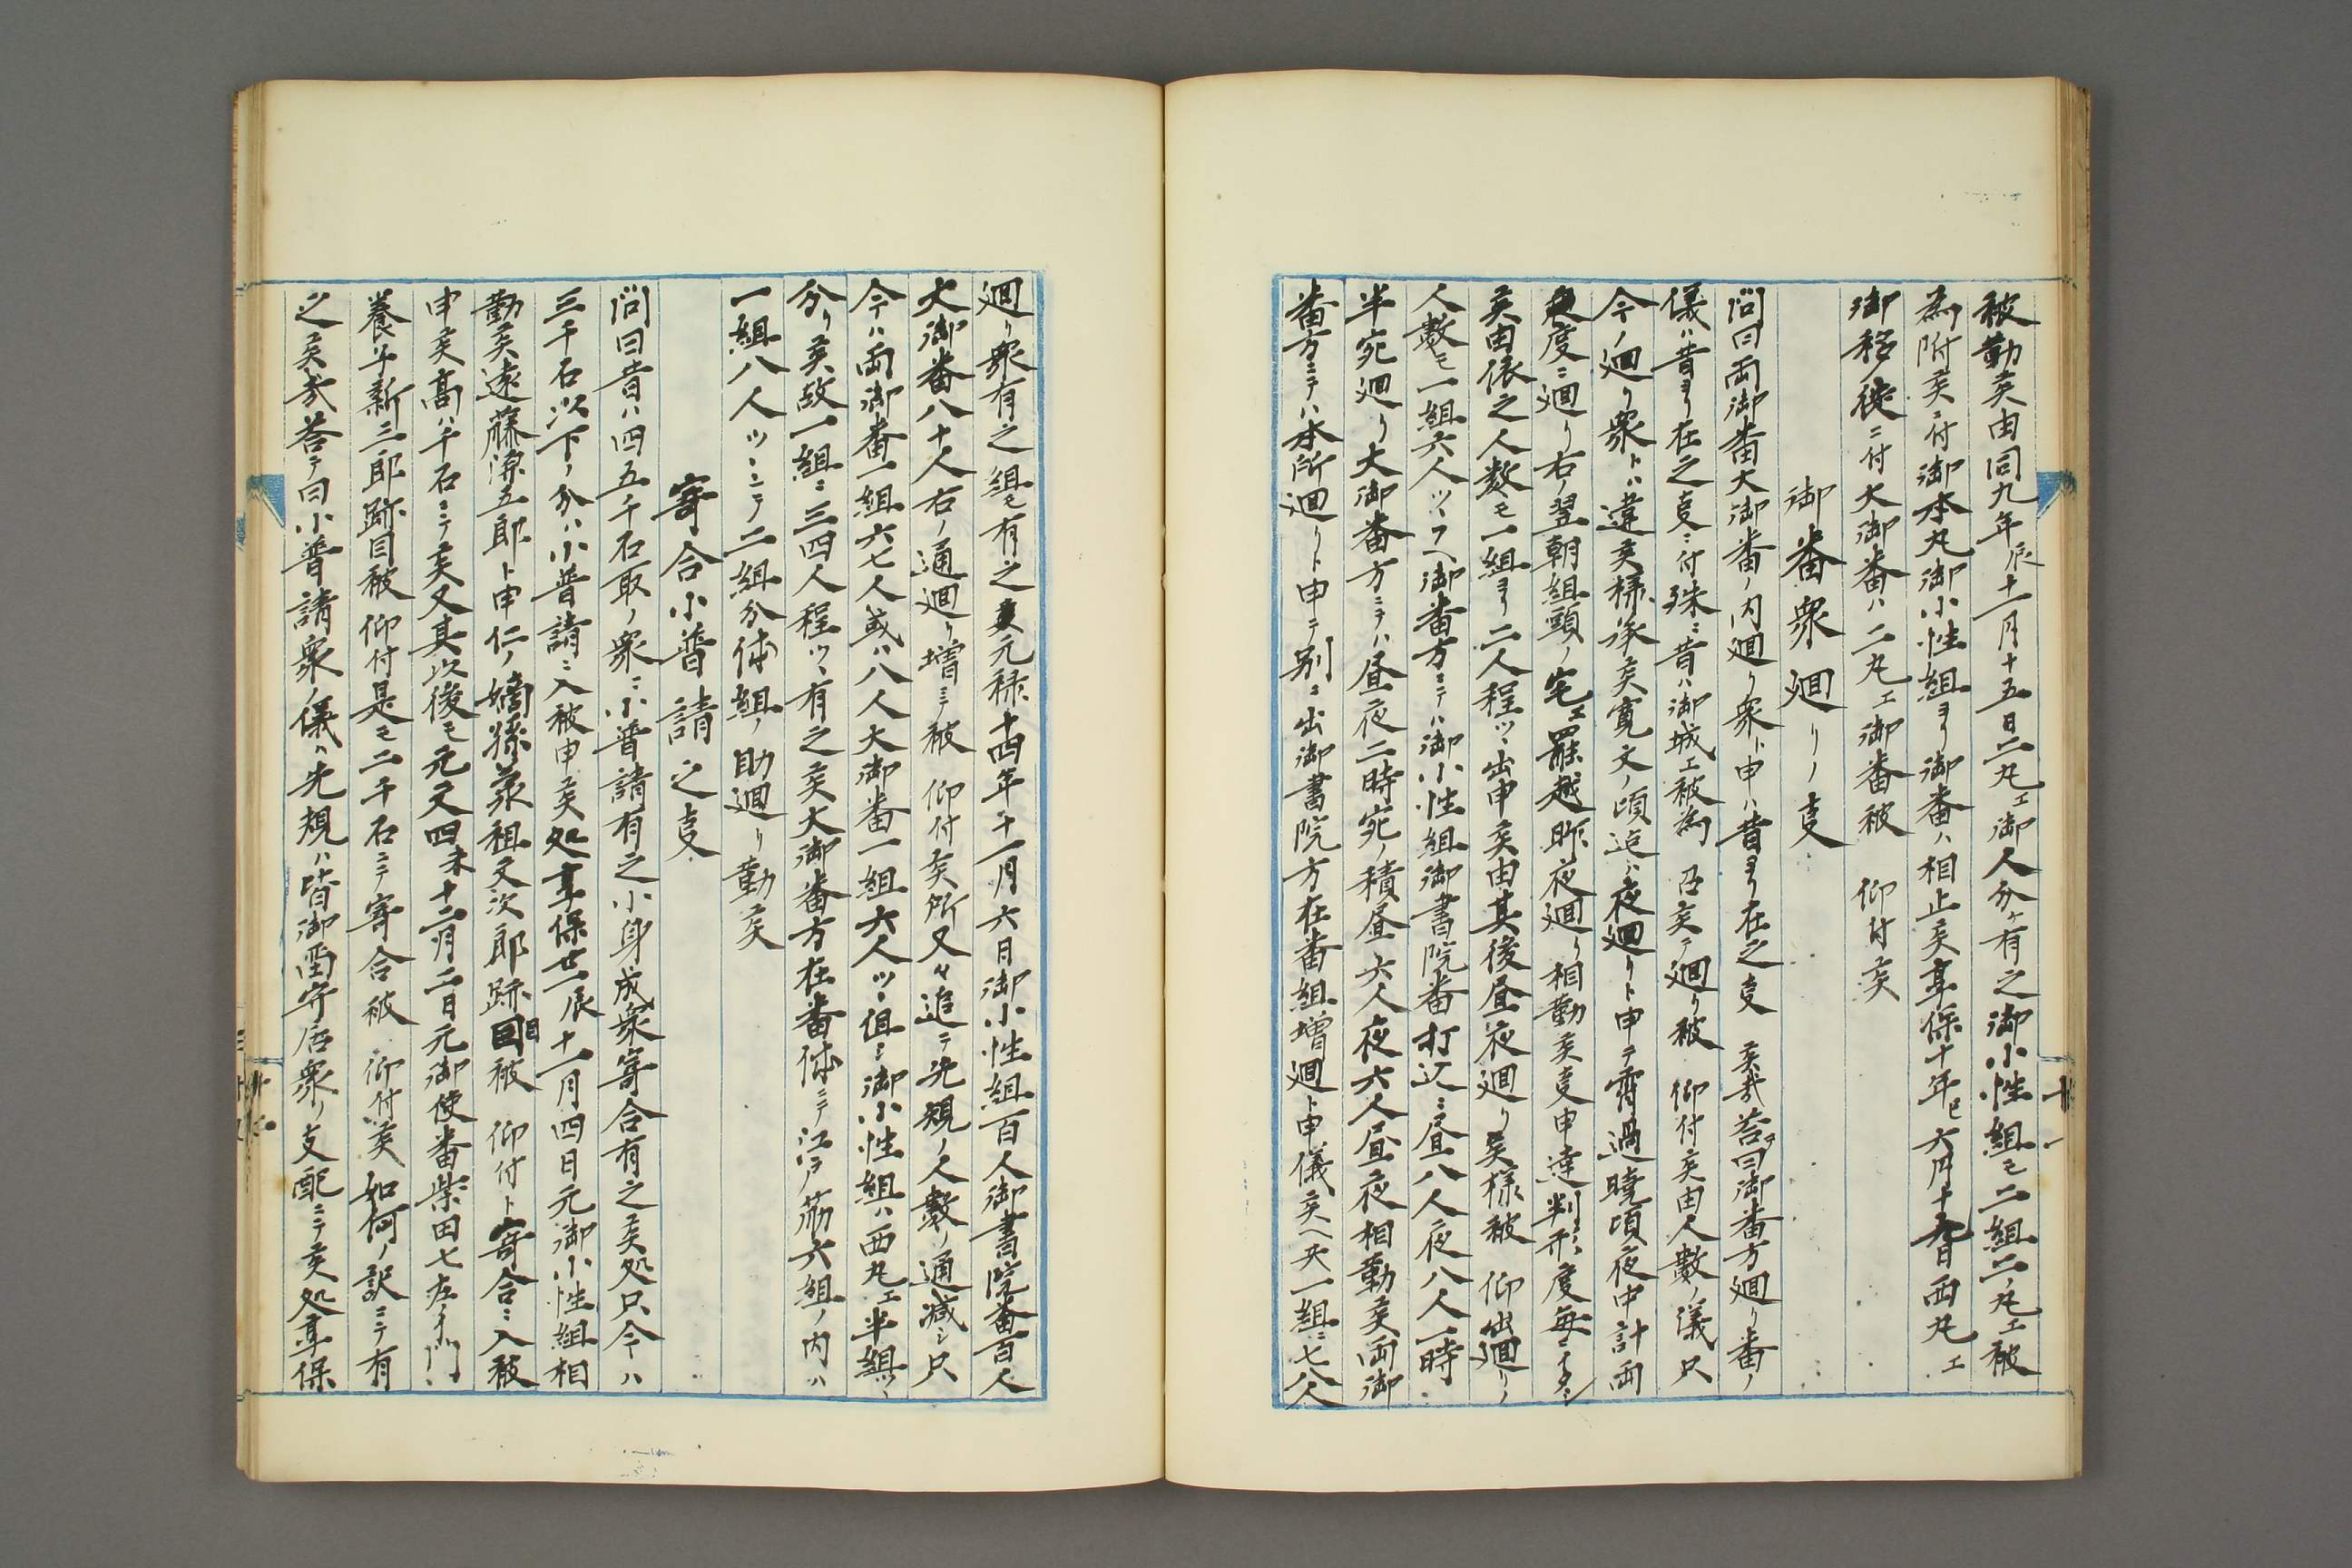 被勤候由同九年辰十一月十五日二丸エ御人分ケ有之御小性組モ二組二ノ丸エ被
為附候ニ付御本丸御小性組ヨリ御番ハ相止候享保十年巳六月十九日西丸エ
御移徙ニ付大御番ハ二丸エ御番被　仰付候
御番衆廻リノ叓
問曰両御番大御番ノ内廻リ衆ト申ハ昔ヨリ在之叓　候哉答テ曰御番方廻リ番ノ
儀ハ昔ヨリ在之叓ニ付殊ニ昔ハ御城エ被為　召候テ廻リ被　仰付候由人数ノ儀只
今ノ廻リ衆トハ違候様承候寛文ノ頃迄ハ夜廻リト申テ宵過暁頃夜中計両
度ニ廻リ右ノ翌朝組頭ノ宅エ罷越昨夜廻リ相勤候叓申達判形ハ度毎ニイタシ
候由依之人数モ一組ヨリ二人程ツヽ出申候由其後昼夜廻リ候様被　仰出廻リノ
人数モ一組六人ツヽフヘ御番方ニテハ御小性組御書院番打込ニ昼八人夜八人一時
半宛廻リ大御番方ニテハ昼夜二時宛ノ積昼六人夜六人昼夜相勤候両御
番方ニテハ本所廻リト申テ別ニ出御書院方在番組増廻ト申儀候ヘ共一組ニ七八人
廻リ衆有之組モ有之候元禄十四年十一月六日御小性組百人御書院番百人
大御番八十人右ノ通廻リ増ニ被　仰付候所又々追テ先規ノ人数ノ通減シ只
今ハ両御番一組六七人或ハ八人大御番一組六人ツヽ但シ御小性組ハ西丸エ半組ツヽ
分リ候故一組ニ三四人程ツヽ有之候大御番方在番休ニテ江戸ノ節六組ノ内ハ
一組八人ツヽニテ二組分休組ノ助廻リ勤候
寄合小普請之叓
問曰昔ハ四五千石取ノ衆ニ小普請有之小身成衆寄合有之候処只今ハ
三千石以下ノ分ハ小普請ニ入被申候処享保廿一辰十一月四日元御小性組相
勤候遠藤源五郎ト申仁ノ嫡孫承祖文次郎跡目被　仰付ト寄合ニ入被
申候高ハ千石ニテ候又其以後モ元文四未十二月二日元御使番柴田七左衛門
養子新三郎跡目被　仰付是モ二千石ニテ寄合被　仰付候如何ノ訳ニテ有
之候哉答テ曰小普請衆ノ儀ハ先規ハ皆御留守居衆ノ支配ニテ候処享保